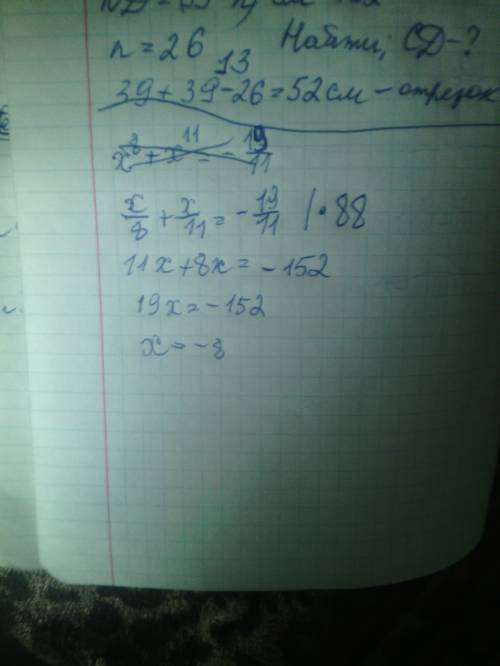 n = 26 Найти; СД-?
13
39 + 39 - 26 = 52 см - отрезок
x^8 + x^11 = - 19/11
x/8 + x/11 = - 19/11 | · 88
11x + 8x = - 152
19x = - 152
x = - 8